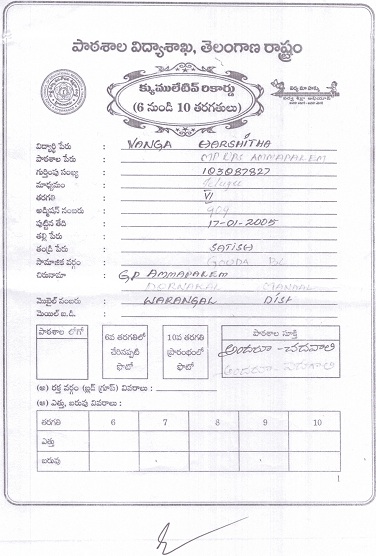 పాఠశాల విద్యాశాఖ, తెలంగాణ రాష్ట్రం
క్యుములేటివ్ రికార్డు
(6 నుండి 10 తరగతులు)
విద్యార్థి పేరు : VANGA HARSHITHA
పాఠశాల పేరు : MPUPS AMMAPALEM
గుర్తింపు సంఖ్య : 103087827
మాధ్యమం : Telugu
తరగతి : VI
అడ్మిషన్ నంబరు : 909
పుట్టిన తేది : 17-01-2005
తల్లి పేరు :
తండ్రి పేరు : SATISH
సామాజిక వర్గం : GOUDA BC
చిరునామా : G.P AMMAPALEM
DORNAKAL MANDAL
మొబైల్ నంబరు : WARANGAL Dist
మెయిల్ ఐ.డి. :
పాఠశాల లోగో
6వ తరగతిలో చేరినప్పటి ఫొటో
10వ తరగతి ప్రారంభంలో ఫొటో
పాఠశాల సూక్తి
అందరూ - చదవాలి
అందరూ - ఎదగాలి
(అ) రక్త వర్గం (బ్లడ్ గ్రూప్) వివరాలు :
(ఆ) ఎత్తు, బరువు వివరాలు :
తరగతి 6 7 8 9 10
ఎత్తు
బరువు